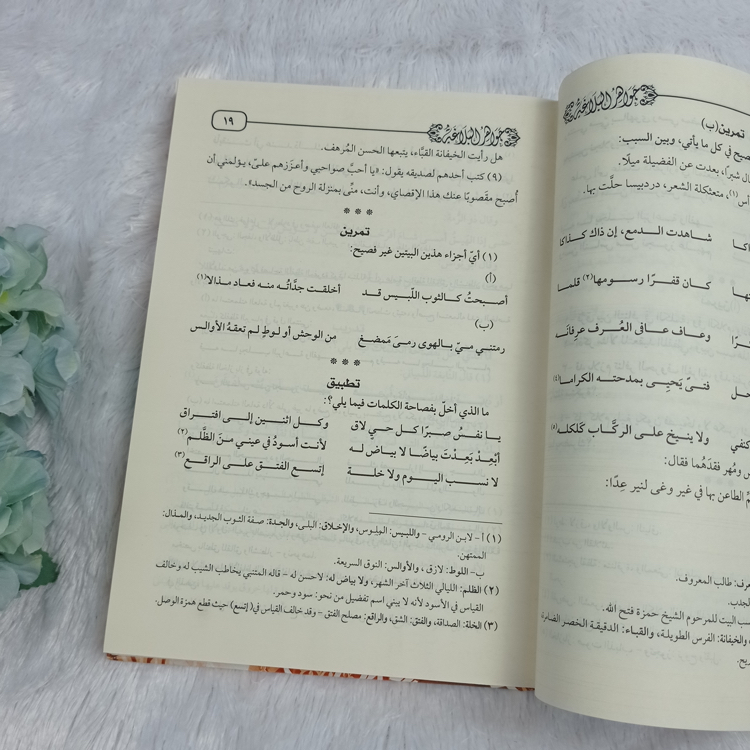 جواهر البلاغة
تمرين (ب)
صيح في كل ما يأتي، وبين السبب:
ال شبرًا، بعدت عن الفضيلة ميلًا.
أس(١)، متعثكلة الشعر، دردبيسا حلَّت بها.
شاهدت الدمع، إن ذاك كذاكا
كان قفرًا رسومها(٢) قلما
وعاف عافى العُرف عرفانَه
فتىً يَحيِى بمدحته الكراما(٤)
ولا ينيخ على الركَّاب كَلكله(٥)
س ومُهر فقدَهُما فقال:
مُ الطاعن بها في غير وغى لنير عِدًا:
عرف: طالب المعروف.
الجدب.
سب البيت للمرحوم الشيخ حمزة فتح الله.
والخيفانة: الفرس الطويلة، والقباء: الدقيقة الخصر الضامرة
جواهر البلاغة
١٩
هل رأيت الخيفانة القبَّاء، يتبعها الحسن المُرهف.
(٩) كتب أحدهم لصديقه يقول: «يا أحبَّ صواحبي وأعزَزهم علىّ، يؤلمني أن
أُصبح مقَصوبًا عنك هذا الإقصاي، وأنت، منِّى بمنزلة الروح من الجسد».
***
تمرين
(١) أيّ أجزاء هذين البيتين غير فصيح:
(أ)
أصبحتُ كالثوب اللَّبيس قد أخلقت جدَّاتُه منه فعاد مذالا(١)
(ب)
رمتني ميّ بالهوى رمىَ مَمضغ من الوحش أو لوطٍ لم تعقهُ الأوالس
***
تطبيق
ما الذي أخلّ بفصاحة الكلمات فيما يلي؟:
يا نفسُ صبرًا كل حي لاق وكل اثنين إلى افتراق
أبْعِدْ بَعِدْتَ بياضًا لا بياض له لأنت أسودُ في عيني منَ الظَّلَم(٢)
لا نسب اليوم ولا خلة إتسع الفتق على الراقع(٣)
(١) أ – لابن الرومي – واللبيس: الملبوس، والإخلاق: البلى، والجدة: صفة الثوب الجديد، والمذال:
الممتهن.
ب– اللوط: لازق، والأوالس: النوق السريعة.
(٢) الظلم: الليالي الثلاث آخر الشهر، ولا بياض له: لاحسن له – قاله المتنبي يخاطب الشيب له وخالف
القياس في الأسود لأنه لا يبني اسم تفضيل من نحو: سود وحمر.
(٣) الخلة: الصداقة، والفتق: الشق، والراقع: مصلح الفتق – وقد خالف القياس في (إتسع) حيث قطع همزة الوصل.